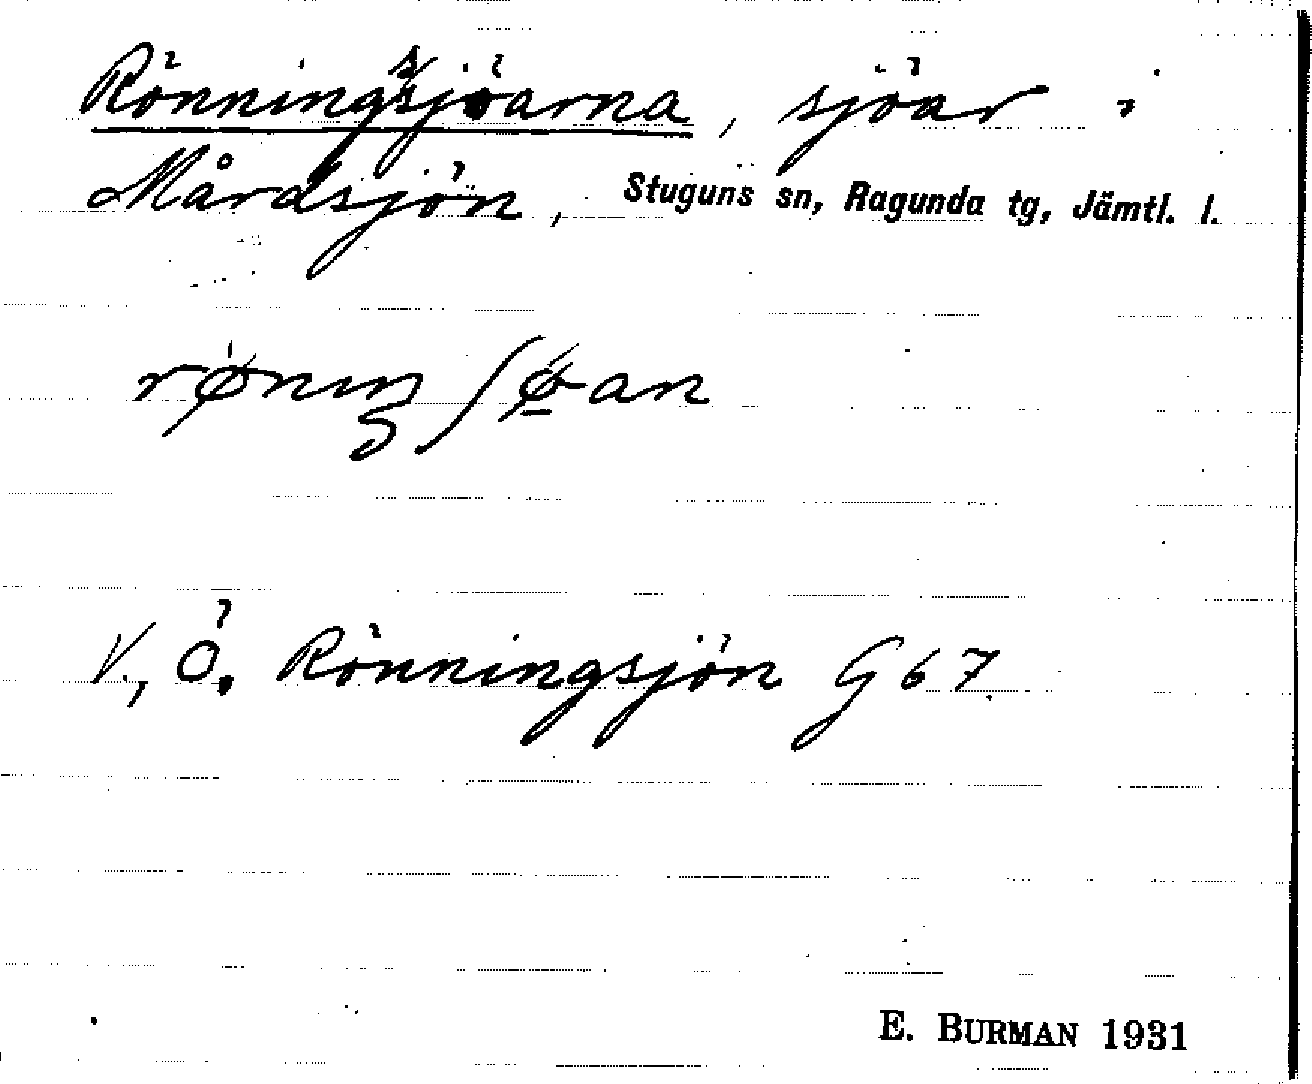 Rönningsjöarna, sjöar i
Mårdsjön, Stuguns sn, Ragunda tg, Jämtl. l.
V., Ö. Rönningsjön G 67
E. BURMAN 1931